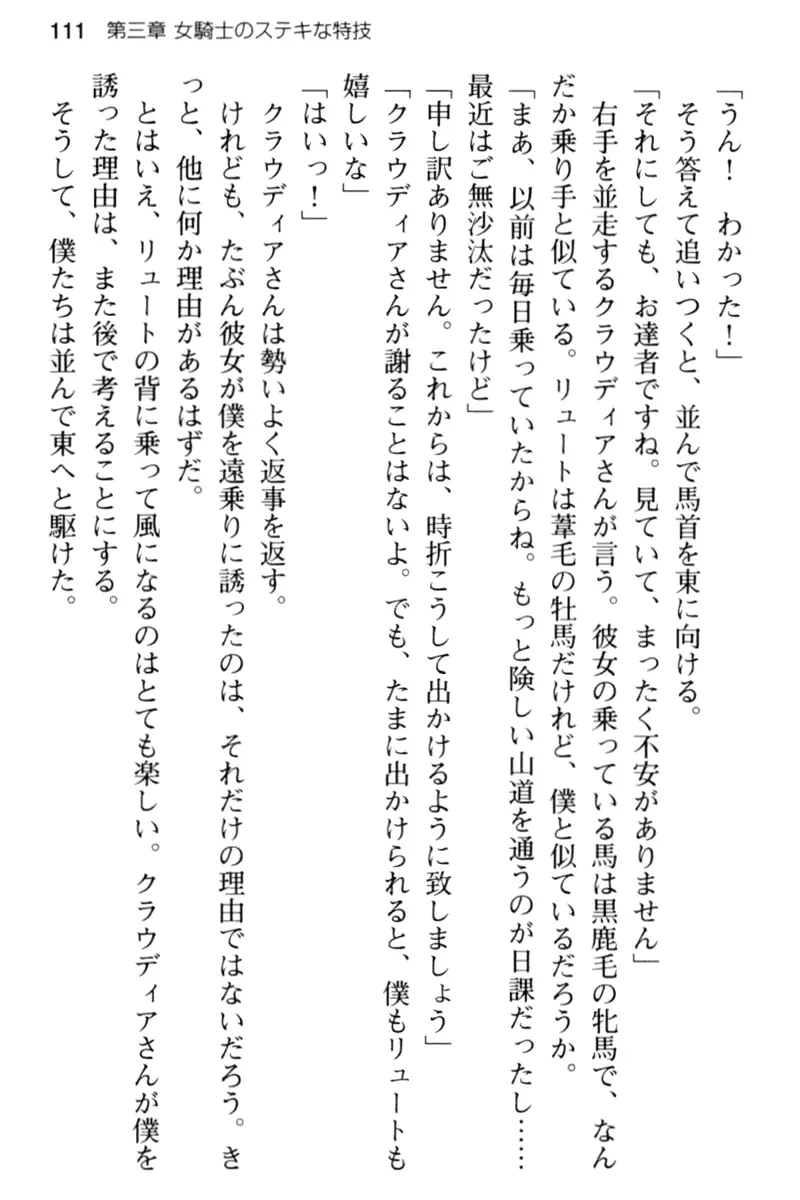 111 第三章 女騎士のステキな特技
「うん!　わかった!」
そう答えて追いつくと、並んで馬首を東に向ける。
「それにしても、お達者ですね。見ていて、まったく不安がありません」
右手を並走するクラウディアさんが言う。彼女の乗っている馬は黒鹿毛の牝馬で、なん
だか乗り手と似ている。リュートは葦毛の牡馬だけれど、僕と似ているだろうか。
「まあ、以前は毎日乗っていたからね。もっと険しい山道を通うのが日課だったし……
最近はご無沙汰だったけど」
「申し訳ありません。これからは、時折こうして出かけるように致しましょう」
「クラウディアさんが謝ることはないよ。でも、たまに出かけられると、僕もリュートも
嬉しいな」
「はいっ!」
クラウディアさんは勢いよく返事を返す。
けれども、たぶん彼女が僕を遠乗りに誘ったのは、それだけの理由ではないだろう。き
っと、他に何か理由があるはずだ。
とはいえ、リュートの背に乗って風になるのはとても楽しい。クラウディアさんが僕を
誘った理由は、また後で考えることにする。
そうして、僕たちは並んで東へと駆けた。